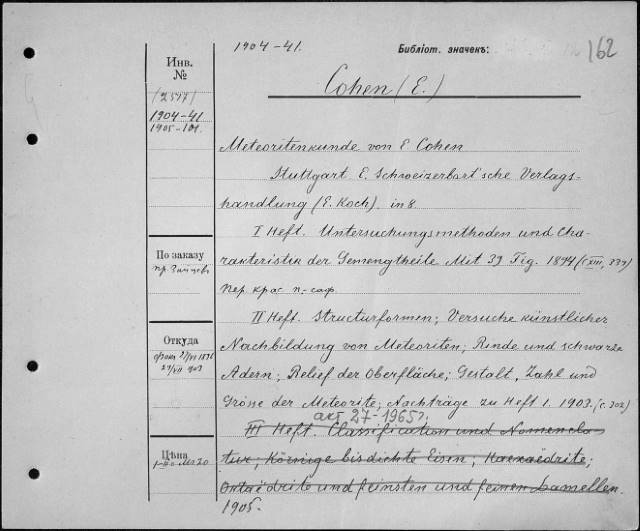 1904-41.
Библіот. значекъ:
162
Инв.
№
(2547)
1904-41
1905-101.
Cohen (E.)
Meteoritenkunde von E Cohen
Stuttgart E. Schweizerbart'sche Verlags-
handlung (E. Koch). in 8
I Heft. Untersuchungsmethoden und Cha-
По заказу
пр. Зайцев
rakteristik der Gemengtheile Mit 39 Fig. 1894 (с XIII, 337)
пер крас п. саф.
II Heft. Structurformen; Versuche künstlicher
Откуда
Nachbildung von Meteoriten; Rinde und schwarze
Adern; Relief der Oberfläche; Gestalt, Zahl und
Grösse der Meteorite; Nachträge zu Heft 1. 1903. (с. 302)
акт 27-1965 г.
III Heft. Classification und Nomencla-
Цѣна
tur; Körnige bis dichte Eisen; Hexaëdrite;
Oktaëdrite und feinsten und feinen Lamellen.
1905.